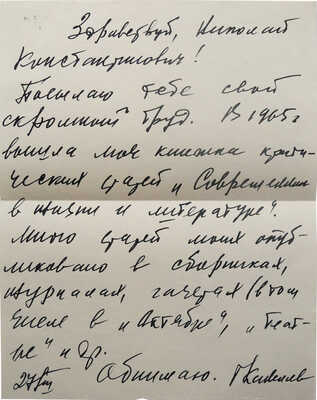 Здравствуй, Николай
Константинович!
Посылаю тебе свой
скромный труд. В 1965 г
вышла моя книжка крити-
ческих статей „Современник
в жизни и литературе“.
Много статей моих опуб-
ликовано в сборниках,
журналах, газетах (в том
числе в „Октябре“, „Теат-
ре“ и др.
Обнимаю.